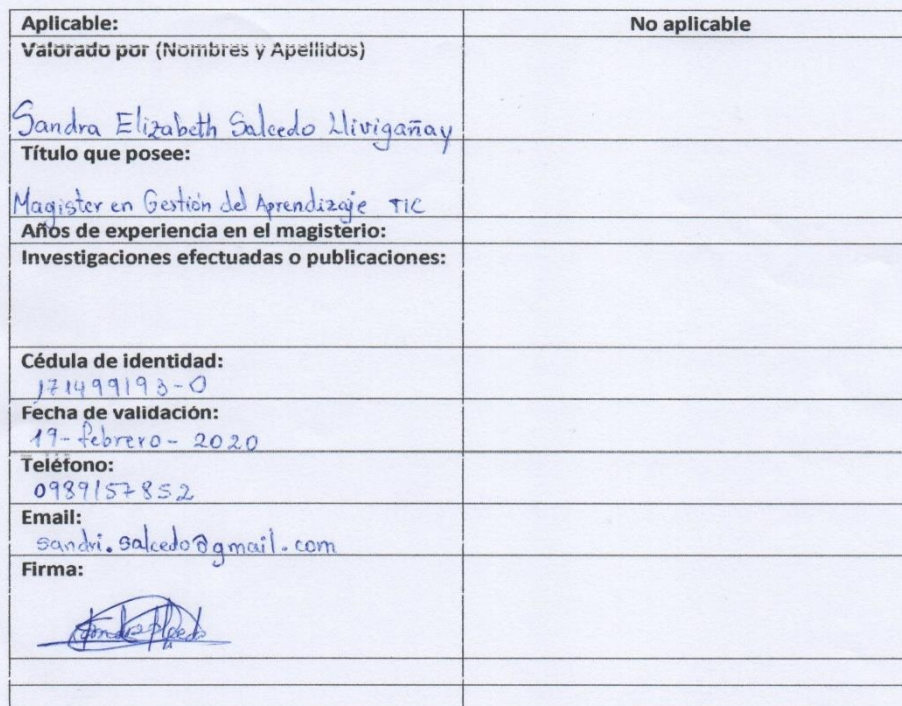 Aplicable: No aplicable
Valorado por (Nombres y Apellidos)
Sandra Elizabeth Salcedo Llivigañay
Título que posee:
Magister en Gestión del Aprendizaje TIC
Años de experiencia en el magisterio:
Investigaciones efectuadas o publicaciones:
Cédula de identidad:
171499193-0
Fecha de validación:
19-febrero-2020
Teléfono:
0989157852
Email:
sandri.salcedo@gmail.com
Firma: